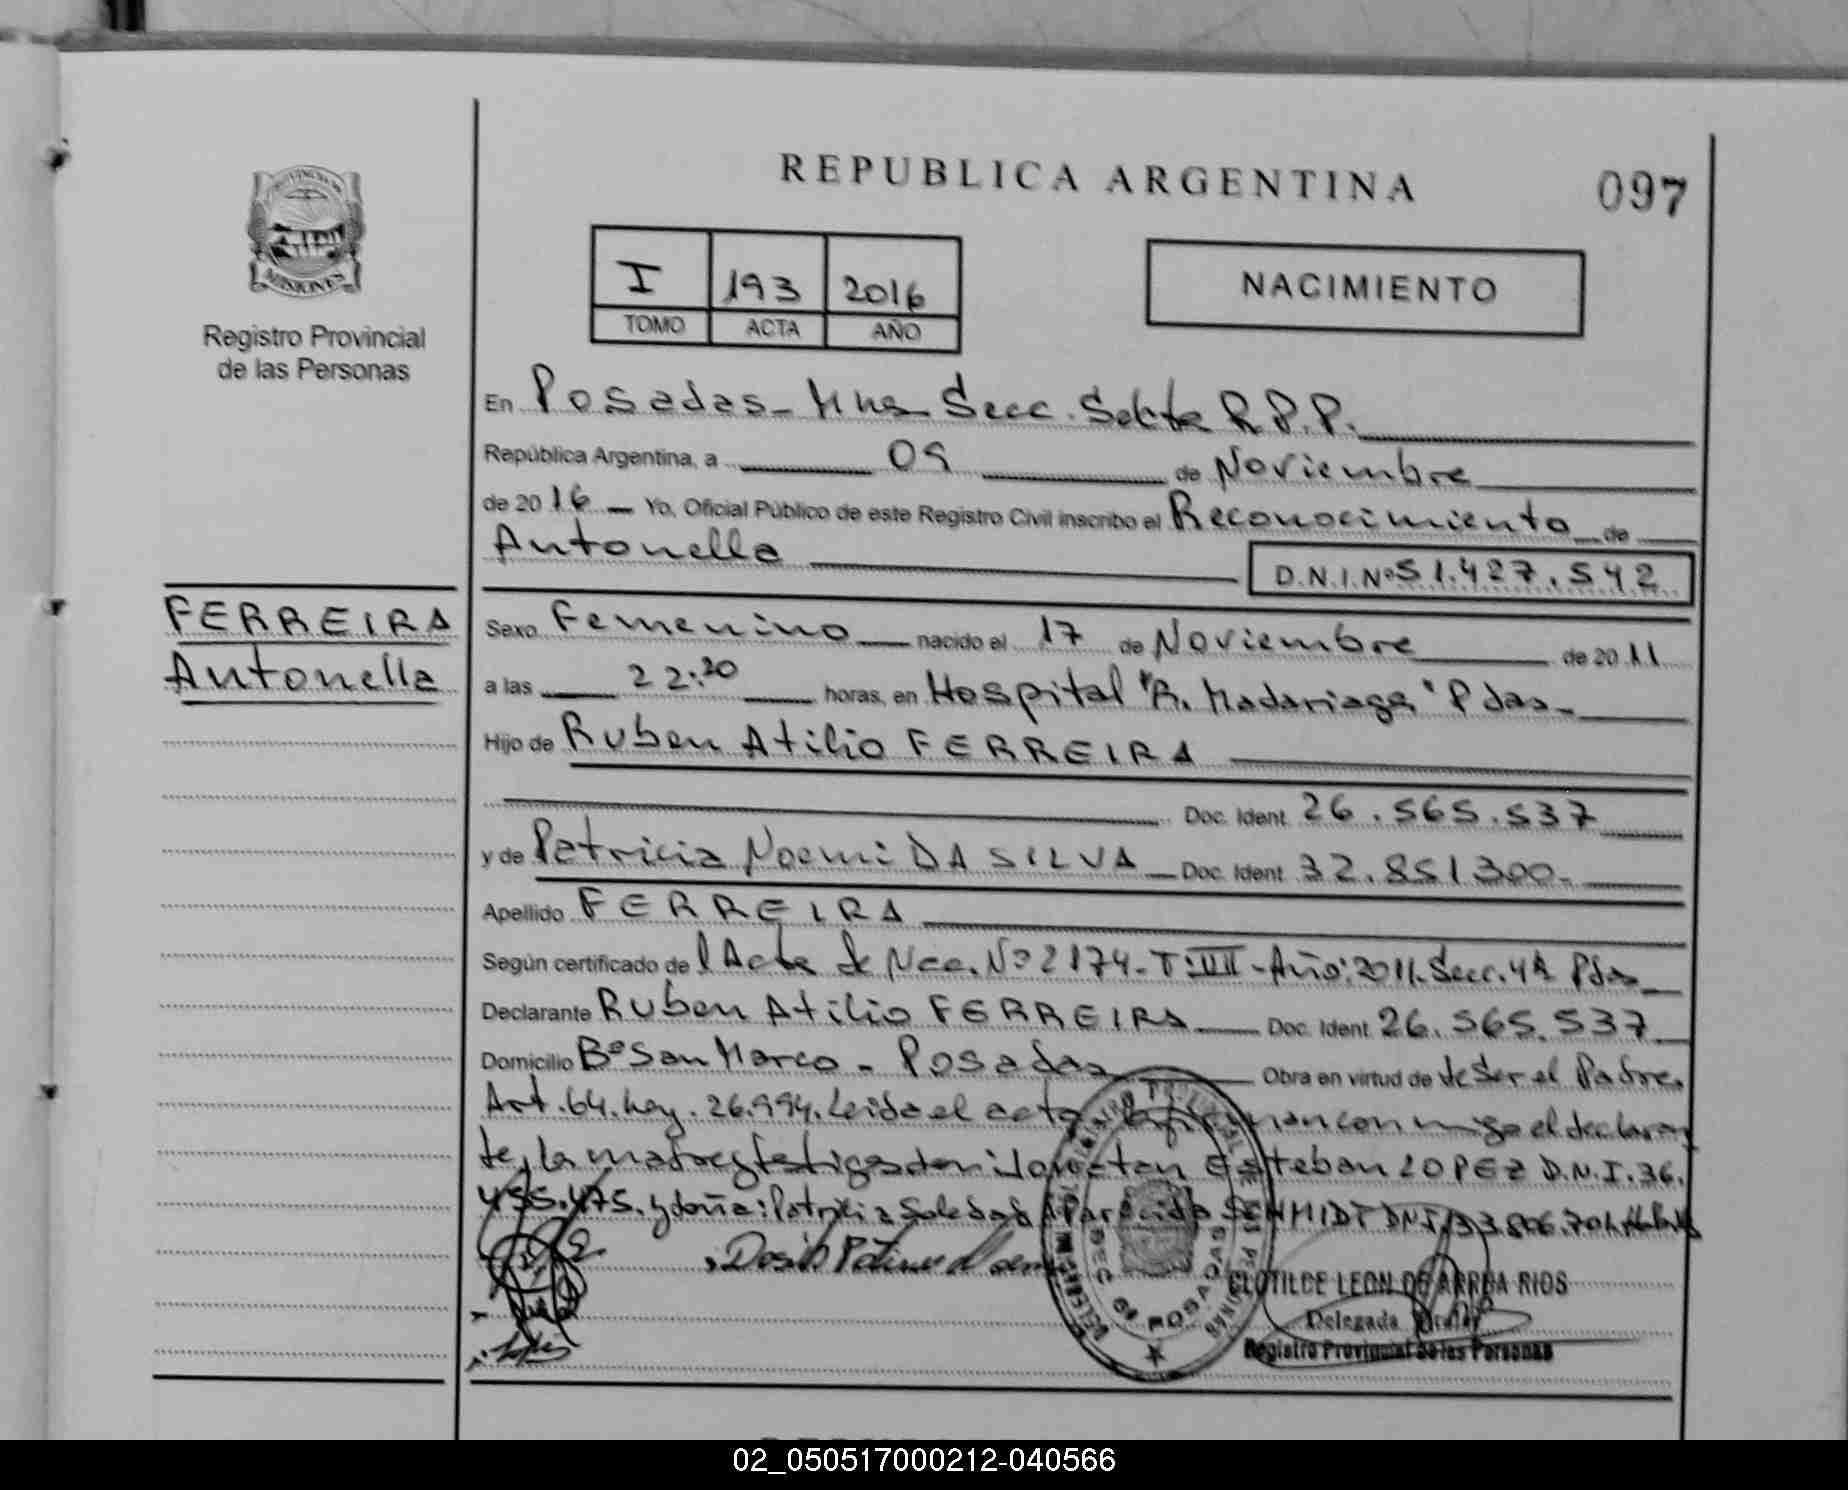 REPUBLICA ARGENTINA
097
PROVINCIA DE
MISIONES
Registro Provincial
de las Personas
I 193 2016
TOMO ACTA AÑO
NACIMIENTO
En Posadas - Mnes Secc. Sexta R.P.P.
República Argentina, a 09 de Noviembre
de 2016 Yo, Oficial Público de este Registro Civil inscribo el Reconocimiento de
Antonella
D.N.I. Nº 51.427.542
FERREIRA
Antonella
Sexo Femenino nacido el 17 de Noviembre de 2011
a las 22:20 horas, en Hospital "R. Madariaga" Pdas -
Hijo de Ruben Atilio FERREIRA
Doc. Ident. 26.565.537
y de Patricia Noemi DA SILVA Doc. Ident. 32.851300-
Apellido FERREIRA
Según certificado del Acta de Nac. Nº 2174 - T: III - Año: 2011. Secc. 4ª Pdas
Declarante Ruben Atilio FERREIRA Doc. Ident. 26.565.537
Domicilio Bº San Marco - Posadas Obra en virtud de de ser el Padre.
Art. 64. Ley. 26.994. Leida el acta firman conmigo el declaran
te, la madre y testigos don: Jonatan Esteban LOPEZ D.N.I. 36.
455.475. y doña: Patricia Soledad Aparecida SCHMIDT DNI 33.806.701.
CLOTILDE LEON DE ARRUA RIOS
Delegada Titular
Registro Provincial de las Personas
02_050517000212-040566